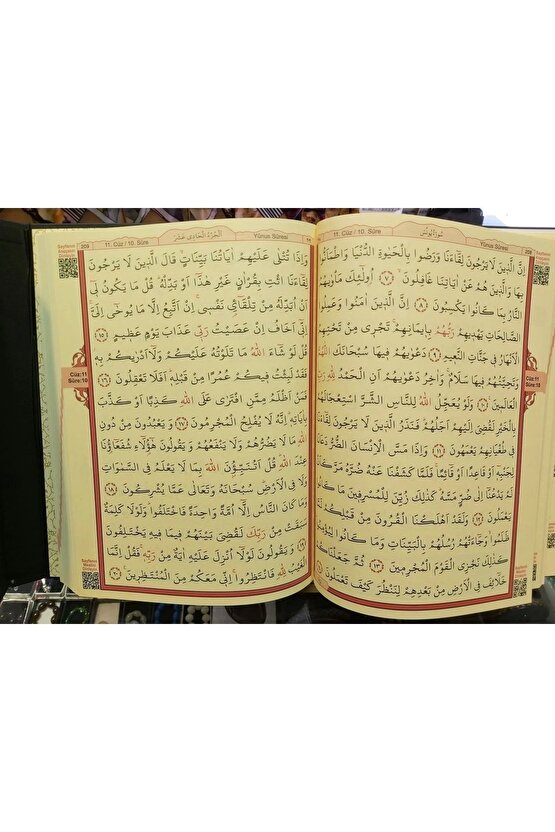 208
11. Cüz / 10. Sûre
سُورَةُ يُونُسَ
Yûnus Sûresi
اِنَّ الَّذ۪ينَ لَا يَرْجُونَ لِقَٓاءَنَا وَرَضُوا بِالْحَيٰوةِ الدُّنْيَا وَاطْمَاَنُّوا
بِهَا وَالَّذ۪ينَ هُمْ عَنْ اٰيَاتِنَا غَافِلُونَۙ ﴿٧﴾ اُو۬لٰٓئِكَ مَأْوٰيهُمُ
النَّارُ بِمَا كَانُوا يَكْسِبُونَ ﴿٨﴾ اِنَّ الَّذ۪ينَ اٰمَنُوا وَعَمِلُوا
الصَّالِحَاتِ يَهْد۪يهِمْ رَبُّهُمْ بِا۪يمَانِهِمْۚ تَجْر۪ي مِنْ تَحْتِهِمُ
الْاَنْهَارُ ف۪ي جَنَّاتِ النَّع۪يمِ ﴿٩﴾ دَعْوٰيهُمْ ف۪يهَا سُبْحَانَكَ اللّٰهُمَّ
وَتَحِيَّتُهُمْ ف۪يهَا سَلَامٌۚ وَاٰخِرُ دَعْوٰيهُمْ اَنِ الْحَمْدُ لِلّٰهِ رَبِّ
الْعَالَم۪ينَ۟ ﴿١٠﴾ وَلَوْ يُعَجِّلُ اللّٰهُ لِلنَّاسِ الشَّرَّ اسْتِعْجَالَهُمْ
بِالْخَيْرِ لَقُضِيَ اِلَيْهِمْ اَجَلُهُمْۜ فَنَذَرُ الَّذ۪ينَ لَا يَرْجُونَ لِقَٓاءَنَا
ف۪ي طُغْيَانِهِمْ يَعْمَهُونَ ﴿١١﴾ وَاِذَا مَسَّ الْاِنْسَانَ الضُّرُّ دَعَانَا
لِجَنْبِه۪ٓ اَوْ قَاعِدًا اَوْ قَٓائِمًاۚ فَلَمَّا كَشَفْنَا عَنْهُ ضُرَّهُ مَرَّ كَاَنْ
لَمْ يَدْعُنَٓا اِلٰى ضُرٍّ مَسَّهُۜ كَذٰلِكَ زُيِّنَ لِلْمُسْرِف۪ينَ مَا كَانُوا
يَعْمَلُونَ ﴿١٢﴾ وَلَقَدْ اَهْلَكْنَا الْقُرُونَ مِنْ قَبْلِكُمْ لَمَّا
ظَلَمُواۙ وَجَٓاءَتْهُمْ رُسُلُهُمْ بِالْبَيِّنَاتِ وَمَا كَانُوا لِيُؤْمِنُواۜ
كَذٰلِكَ نَجْزِي الْقَوْمَ الْمُجْرِم۪ينَ ﴿١٣﴾ ثُمَّ جَعَلْنَاكُمْ
خَلَٓائِفَ فِي الْاَرْضِ مِنْ بَعْدِهِمْ لِنَنْظُرَ كَيْفَ تَعْمَلُونَ ﴿١٤﴾
Cüz:11
Sûre:10
209
11. Cüz / 10. Sûre
اَلْجُزْءُ الْحَاد۪ي عَشَرَ
Yûnus Sûresi
وَاِذَا تُتْلٰى عَلَيْهِمْ اٰيَاتُنَا بَيِّنَاتٍۙ قَالَ الَّذ۪ينَ لَا يَرْجُونَ
لِقَٓاءَنَا ائْتِ بِقُرْاٰنٍ غَيْرِ هٰذَٓا اَوْ بَدِّلْهُۜ قُلْ مَا يَكُونُ ل۪ٓي
اَنْ اُبَدِّلَهُ مِنْ تِلْقَٓائِ۬ نَفْس۪يۚ اِنْ اَتَّبِعُ اِلَّا مَا يُوحٰٓى اِلَيَّۚ
اِنّ۪ٓي اَخَافُ اِنْ عَصَيْتُ رَبّ۪ي عَذَابَ يَوْمٍ عَظ۪يمٍ ﴿١٥﴾
قُلْ لَوْ شَٓاءَ اللّٰهُ مَا تَلَوْتُهُ عَلَيْكُمْ وَلَٓا اَدْرٰيكُمْ بِه۪ۘ
فَقَدْ لَبِثْتُ ف۪يكُمْ عُمُرًا مِنْ قَبْلِه۪ۜ اَفَلَا تَعْقِلُونَ ﴿١٦﴾
فَمَنْ اَظْلَمُ مِمَّنِ افْتَرٰى عَلَى اللّٰهِ كَذِبًا اَوْ كَذَّبَ
بِاٰيَاتِه۪ۜ اِنَّهُ لَا يُفْلِحُ الْمُجْرِمُونَ ﴿١٧﴾ وَيَعْبُدُونَ مِنْ دُونِ
اللّٰهِ مَا لَا يَضُرُّهُمْ وَلَا يَنْفَعُهُمْ وَيَقُولُونَ هٰٓؤُ۬لَٓاءِ شُفَعَٓاؤُ۬نَا
عِنْدَ اللّٰهِۜ قُلْ اَتُنَبِّؤُ۫نَ اللّٰهَ بِمَا لَا يَعْلَمُ فِي السَّمٰوَاتِ
وَلَا فِي الْاَرْضِۜ سُبْحَانَهُ وَتَعَالٰى عَمَّا يُشْرِكُونَ ﴿١٨﴾
وَمَا كَانَ النَّاسُ اِلَّٓا اُمَّةً وَاحِدَةً فَاخْتَلَفُواۜ وَلَوْلَا كَلِمَةٌ
سَبَقَتْ مِنْ رَبِّكَ لَقُضِيَ بَيْنَهُمْ ف۪يمَا ف۪يهِ يَخْتَلِفُونَ
﴿١٩﴾ وَيَقُولُونَ لَوْلَٓا اُنْزِلَ عَلَيْهِ اٰيَةٌ مِنْ رَبِّه۪ۚ فَقُلْ اِنَّمَا
الْغَيْبُ لِلّٰهِ فَانْتَظِرُواۚ اِنّ۪ي مَعَكُمْ مِنَ الْمُنْتَظِر۪ينَ۟ ﴿٢٠﴾
Cüz:11
Sûre:10